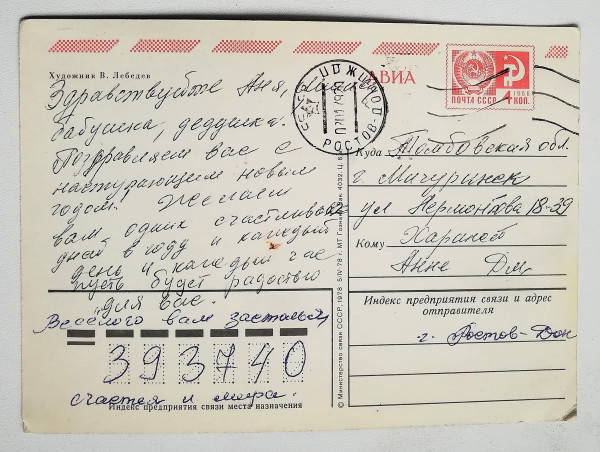 Художник В. Лебедев
АВИА
ПОЧТА СССР
1966
4 КОП.
СССР
РОСТОВ
Здравствуйте Аня,
бабушка, дедушка.
Поздравляем вас с
наступающим новым
годом! Желаем
вам одних счастливых
дней в году и каждый
день и каждый час
пусть будет радостью
для вас.
Весёлого вам застолья,
393740
счастья и мира.
Индекс предприятия связи места назначения
© Министерство связи СССР, 1978
Куда Тамбовская обл.
г Мичуринск
ул Лермонтова 18-39
Кому
Анне Дм
Индекс предприятия связи и адрес
отправителя
г. Ростов-Дон